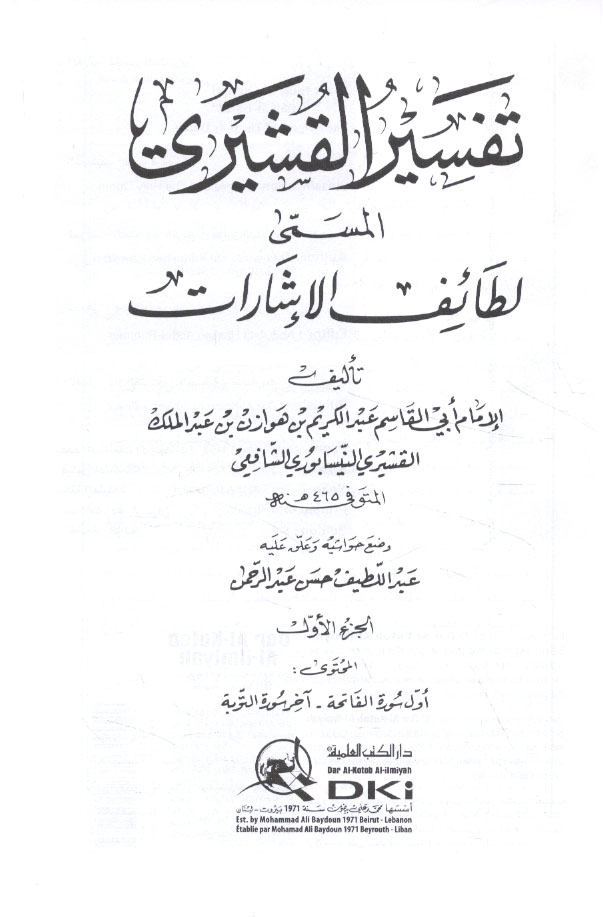 تفسير القشيري
المسمى
لطائف الإشارات
تأليف
الإمام أبي القاسم عبد الكريم بن هوازن بن عبد الملك
القشيري النيسابوري الشافعي
المتوفى ٤٦٥ هـ سنة
وضع حواشيه وعلق عليه
عبد اللطيف حسن عبد الرحمن
الجزء الأول
المحتوى:
أول سورة الفاتحة - آخر سورة التوبة
دار الكتب العلمية
Dar Al-Kotob Al-ilmiyah
DKi
أسسها محمد علي بيضون سنة 1971 بيروت - لبنان
Est. by Mohammad Ali Baydoun 1971 Beirut - Lebanon
Établie par Mohamad Ali Baydoun 1971 Beyrouth - Liban